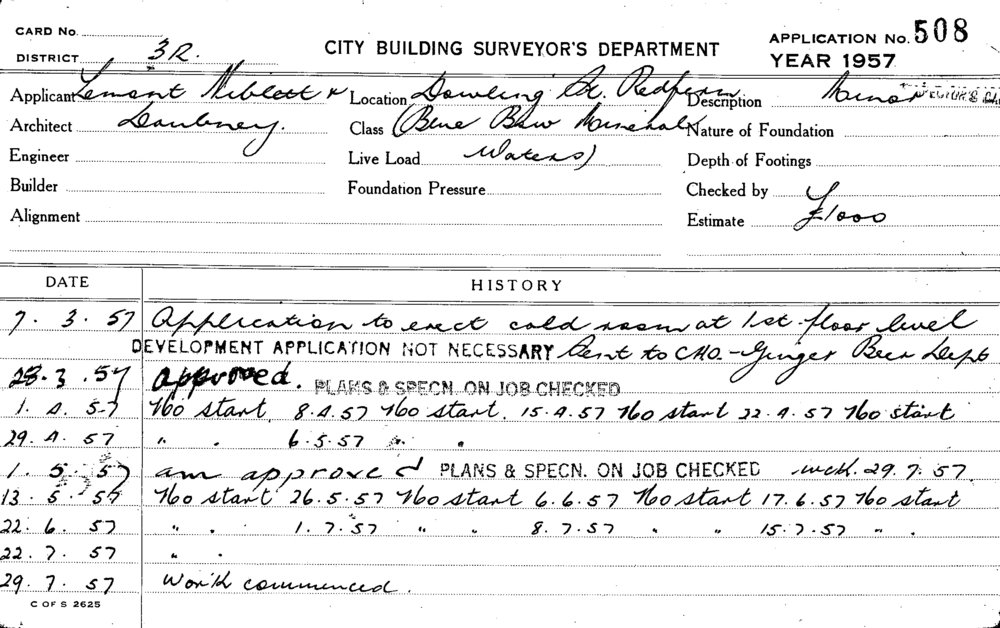 CARD No.
DISTRICT 3R.
CITY BUILDING SURVEYOR'S DEPARTMENT
APPLICATION No. 508
YEAR 1957
Applicant Lamont Niblett &
Location Dowling St. Redfern
Description Minor
Architect Daubney.
Class (Blue Bow Mineral
Nature of Foundation
Engineer
Live Load Waters)
Depth of Footings
Builder
Foundation Pressure
Checked by
Alignment
Estimate £1000
DATE HISTORY
7. 3. 57 Application to erect cold room at 1st. floor level
DEVELOPMENT APPLICATION NOT NECESSARY Sent to CHO. - Ginger Beer Dept
28. 3. 57 approved. PLANS & SPECN. ON JOB CHECKED
1. 4. 57 No start 8.4.57 No start. 15.4.57 No start 22.4.57 No start
29. 4. 57 " . 6.5.57 " .
1. 5. 57 am approved PLANS & SPECN. ON JOB CHECKED 29.7.57.
13. 5. 57 No start 26.5.57 No start 6.6.57 No start 17.6.57 No start
22. 6. 57 " . 1.7.57 " " 8.7.57 " " 15.7.57 " .
22. 7. 57 " .
29. 7. 57 Work commenced.
C OF S 2625